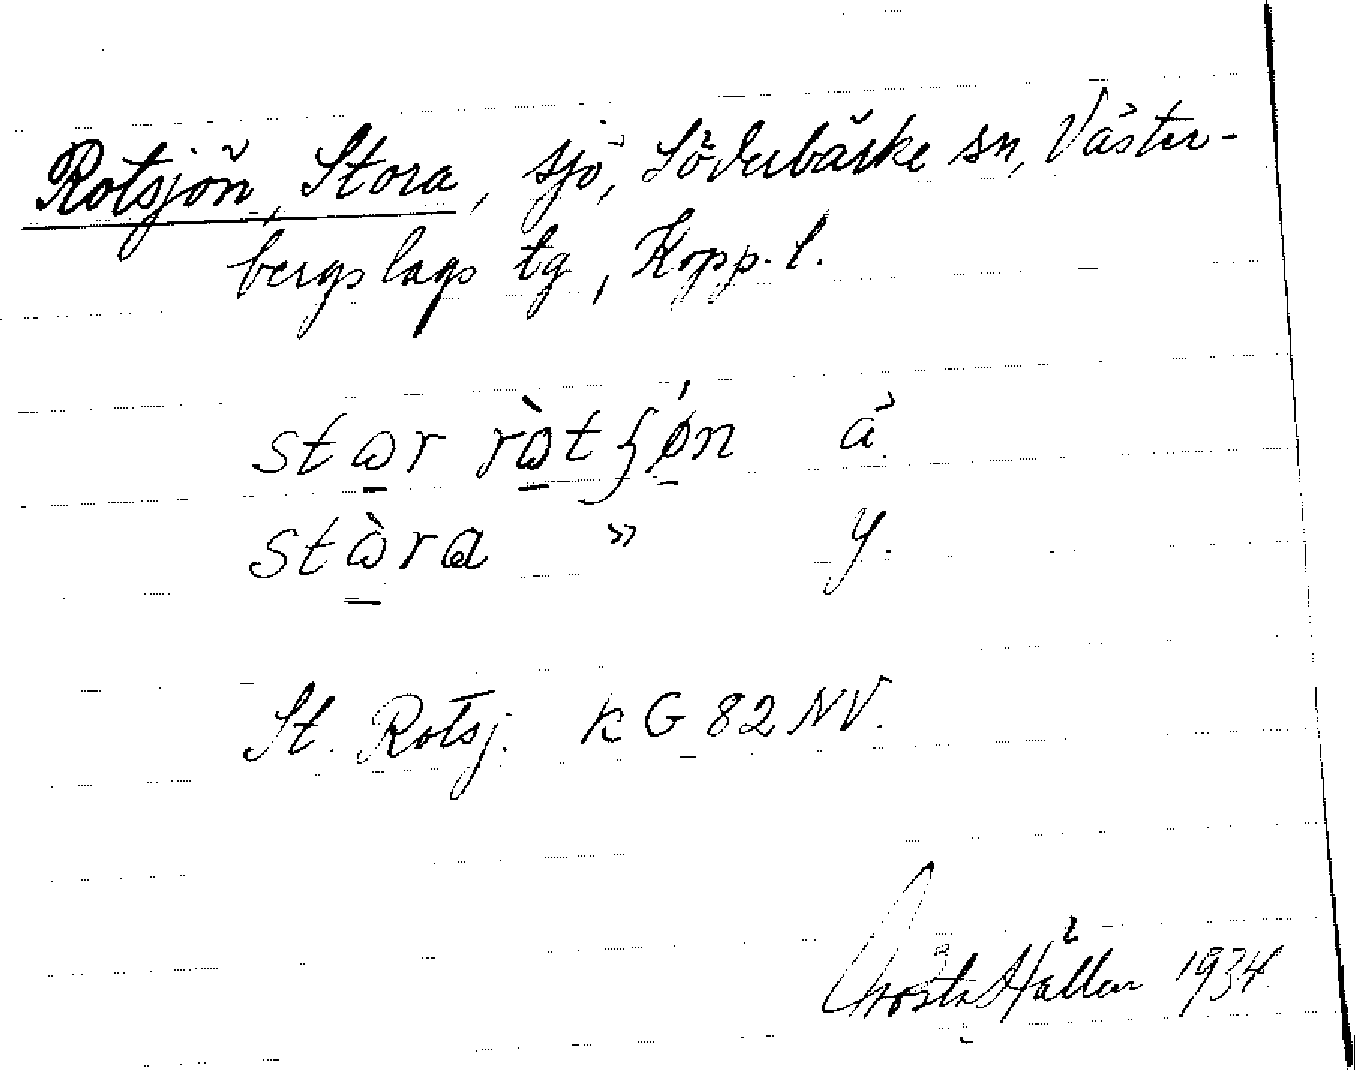 Rotsjön, Stora, sjö, Söderbärke sn, Väster-
bergslags tg, Kopp. l.
stɷr rɷ̀tʃø̀n ä.
stɷ̀ra » y.
St. Rotsj. kG 82 NV.
Gösta Hallen 1934.